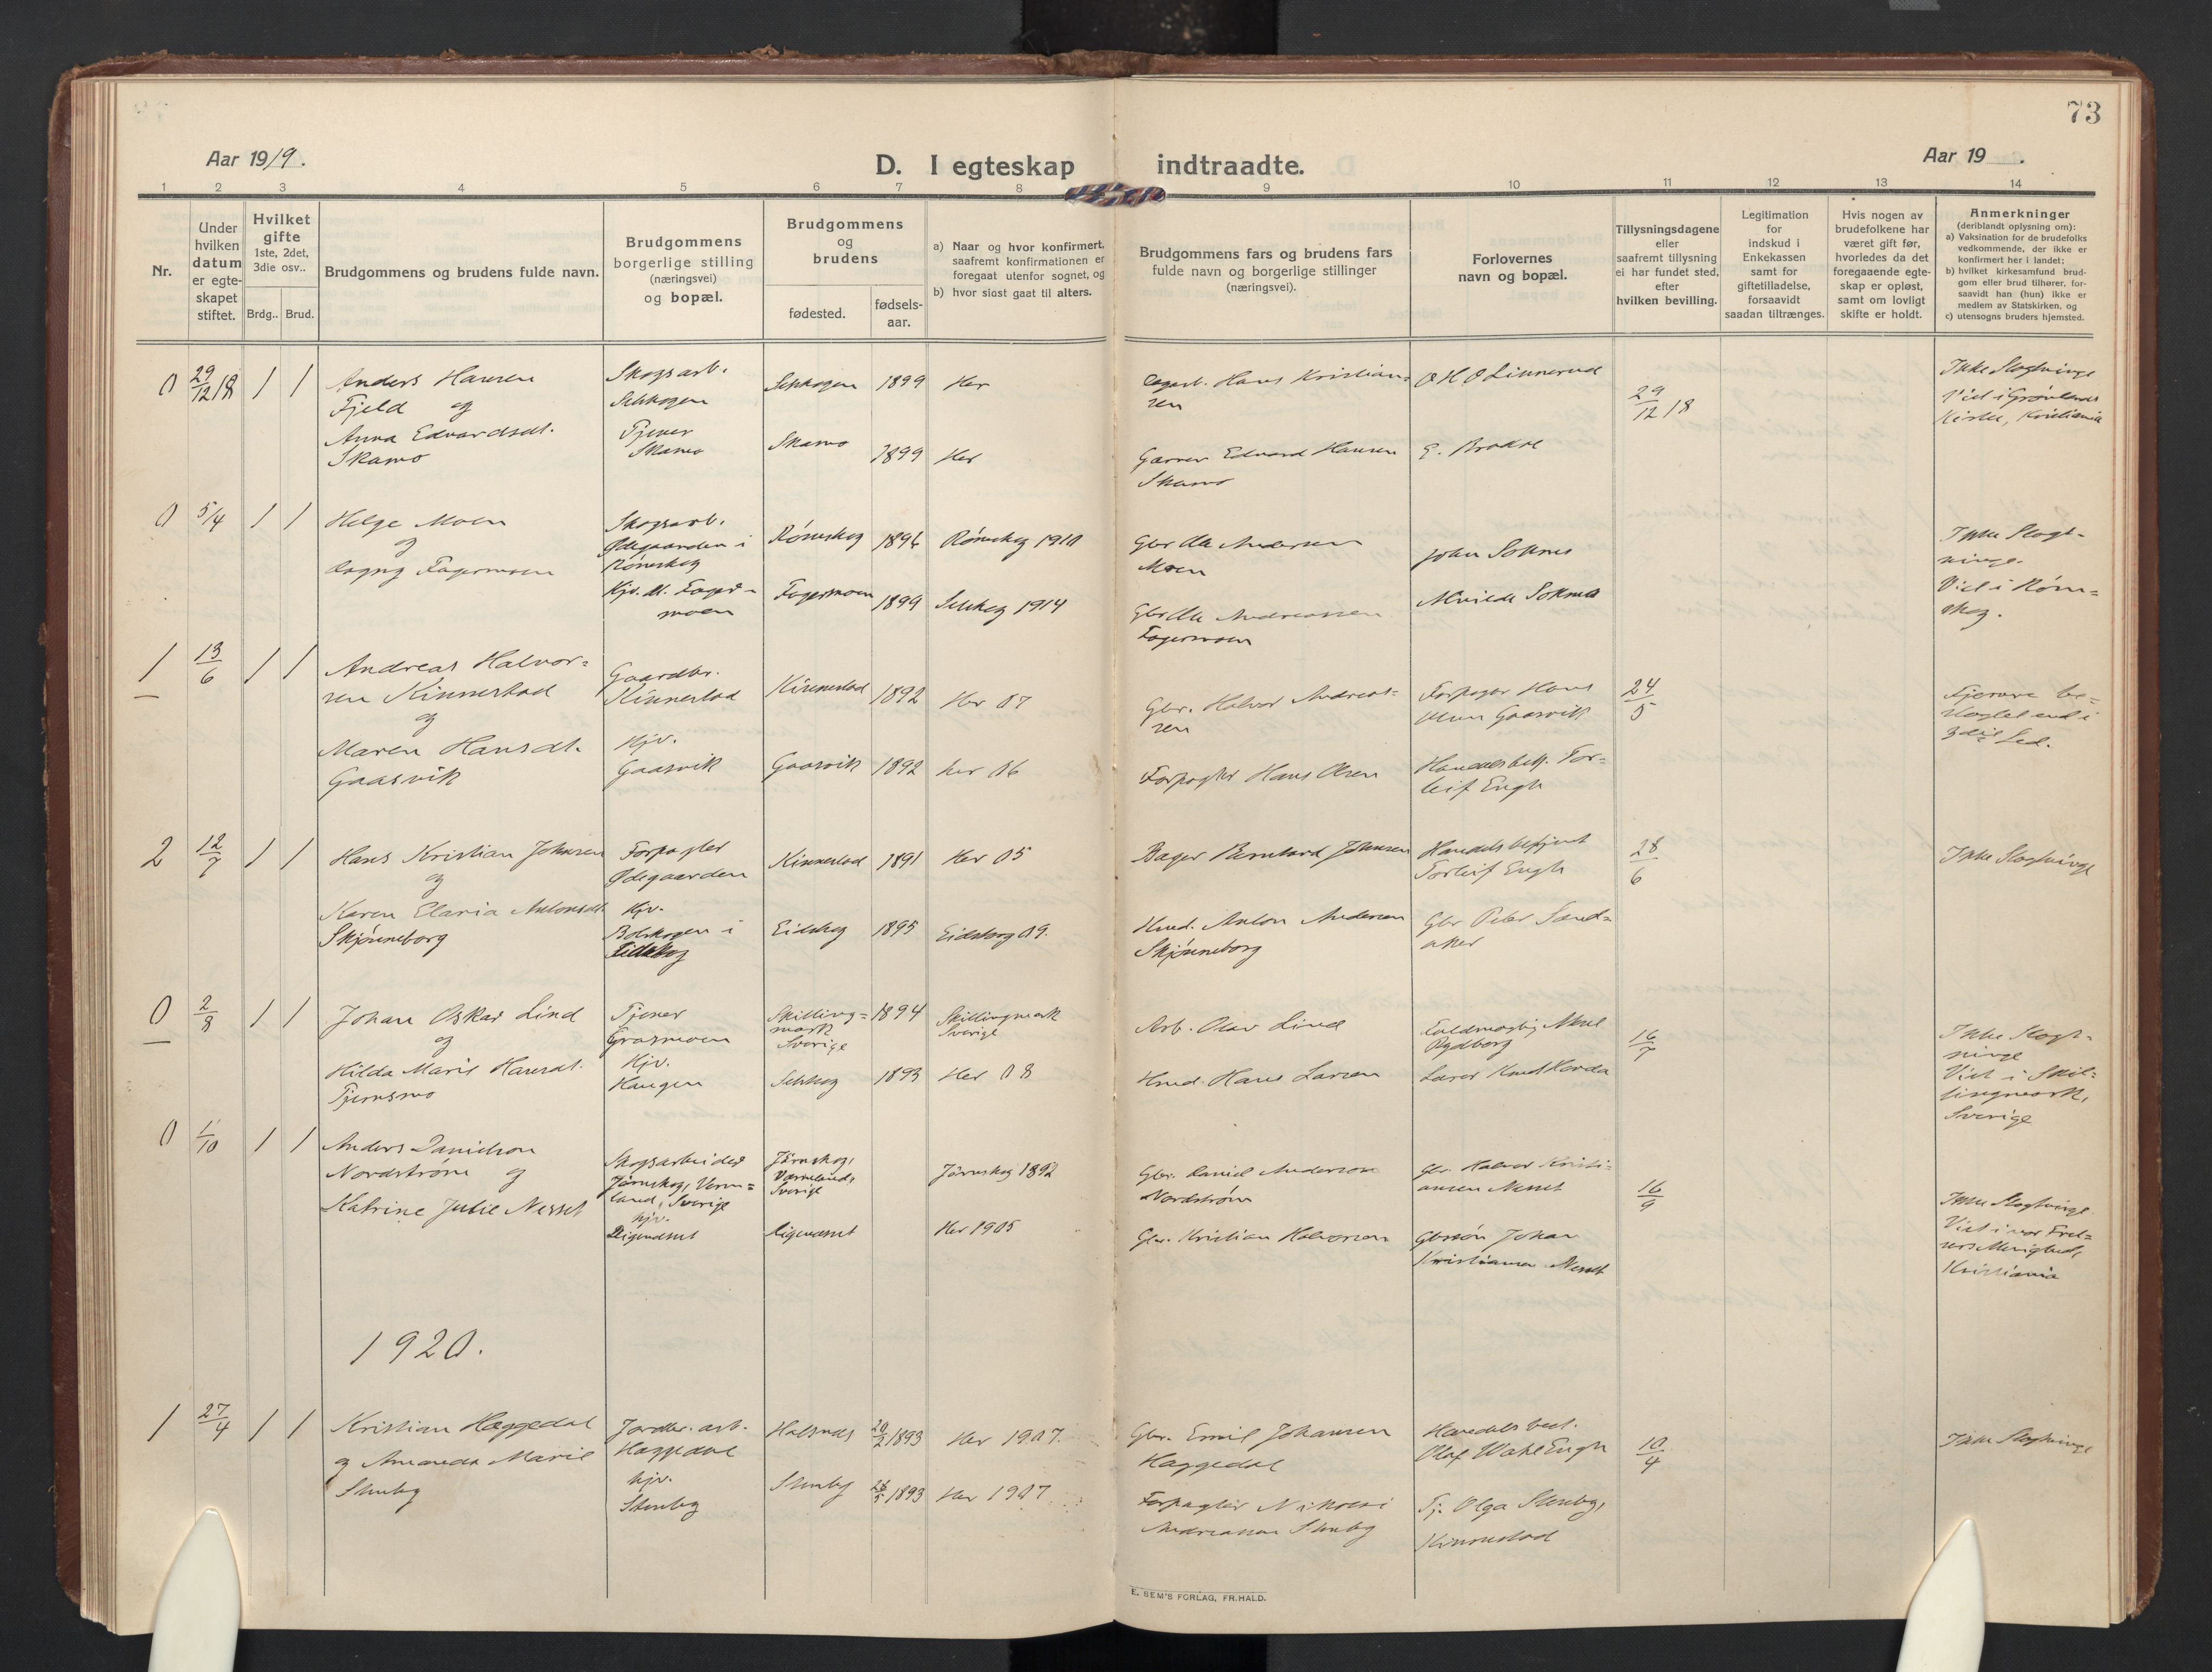 73
Aar 1919.
D. I egteskap indtraadte.
Aar 19 .
1 2 3 4 5 6 7 8 9 10 11 12 13 14
Nr.
Under
hvilken
datum
er egte-
skapet
stiftet.
Hvilket
gifte
1ste, 2det,
3die osv..
Brdg.. Brud.
Brudgommens og brudens fulde navn.
Brudgommens
borgerlige stilling
(næringsvei)
og bopæl.
Brudgommens
og
brudens
fødested.
fødsels-
aar.
a) Naar og hvor konfirmert,
saafremt konfirmationen er
foregaat utenfor sognet, og
b) hvor sidst gaat til alters.
Brudgommens fars og brudens fars
fulde navn og borgerlige stillinger
(næringsvei).
Forlovernes
navn og bopæl.
Tillysningsdagene
eller
saafremt tillysning
ei har fundet sted,
efter
hvilken bevilling.
Legitimation
for
indskud i
Enkekassen
samt for
giftetilladelse,
forsaavidt
saadan tiltrænges.
Hvis nogen av
brudefolkene har
været gift før,
hvorledes da det
foregaaende egte-
skap er opløst,
samt om lovligt
skifte er holdt.
Anmerkninger
(deriblandt oplysning om):
a) Vaksination for de brudefolks
vedkommende, der ikke er
konfirmert her i landet;
b) hvilket kirkesamfund brud-
gom eller brud tilhører, for-
saavidt han (hun) ikke er
medlem av Statskirken, og
c) utensogns bruders hjemsted.
0 29/12 18 1 1
Anders Hansen
Fjeld og
Anna Edvardsdt.
Skamo
Skogsarb.
Setskogen
Tjener
Skamo
Setskogen 1899 Her
Skamo 1899 Her
Hans Kristian=
sen
Garver Edvard Hansen
Skamo
O H O Linnerud
29/12 18
Ikke Slegtninge
Viet i Grønlands
Kirke, Kristiania
0 5/4 1 1
Helge Moen
og
Dagny Fagermoen
Skogsarb.
Ødegaarden i
Rømskog
Fager=
moen
Rømskog 1896 Rømskog 1910
Fagermoen 1899 Setskog 1914
Gbr Ole Andersen
Moen
Gbr Ole Andreassen
Fagermoen
Johan Soknes
Alvilde Soknes
Ikke Slegt-
ninge.
Viet i Røm=
skog.
1 13/6 1 1
Andreas Halvor=
sen Kinnestad
og
Maren Hansdt.
Gaasvik
Gaardbr.
Kinnestad
Hjv.
Gaasvik
Kinnestad 1892 Her 07
Gaasvik 1892 her 06
Gbr. Halvor Andreas=
sen
Forpagter Hans Olsen
Forpagter Hans
Olsen Gaasvik
Handelsbetj. Tor=
leif Engh
24/5
Fjerne be=
slegtet end i
3die Led.
2 12/7 1 1
Hans Kristian Johnsen
og
Karen Elaria Antonsdt.
Skjønneborg
Forpagter
Ødegaarden
Hjv.
Bolskogen i
Eidskog
Kinnestad 1891 Her 05
Eidskog 1895 Eidskog 09.
Bager Bernhard Johnsen
Hmd. Anton Andersen
Skjønneborg
Handelsbetjent
Torleif Engh
Gbr Peter Sand=
aker
28/6
Ikke Slegtninge
0 2/8 1 1
Johan Oskar Lind
og
Hilda Marie Hansdt.
Tjernsmo
Tjener
Grasmoen
Hjv.
Haugen
Skilling=
mark
Sverige
1894
Skillingmark
Sverige
Setskog 1893 Her 08
Arb. Olav Lind
Hmd. Hans Larsen
Fuldmægtig Aksel
Rydborg
Lærer Knut Horda
16/7
Ikke Slegt-
ninge
Viet i Skil=
lingmark,
Sverige
0 1/10 1 1
Anders Danielson
Nordstrøm og
Katrine Julie Nesset
Skogsarbeider
Järnskog, Verm=
land, Sverige
hjv.
Järnskog,
Värmland,
Sverige
Järnskog 1892
Her 1905
Gbr. Daniel Anderson
Nordstrøm
Gbr. Kristian Halvorsen
Gbr. Halvor Kristi=
ansen Nesset
Gbrsøn Johan
Kristiansen Nesset
16/9
Ikke Slegtninge.
Viet i vor Frel=
sers Menighed,
Kristiania
1920.
1 27/4 1 1
Kristian Haggedal
og Amanda Marie
Stenby
Jordbr. arb.
Haggedal
hjv.
Stenby
Halsnes 20/2 1893 Her 1907.
Stenby 1893 Her 1907
Gbr. Emil Johansen
Haggedal
Forpagter Nikolai
Andreassen Stenby
Handelsbest.
Olaf Wahl Engh
Tj. Olga Stenby,
Kinnestad
10/4
Ikke Slegtninge
E. SEM'S FORLAG, FR.HALD.